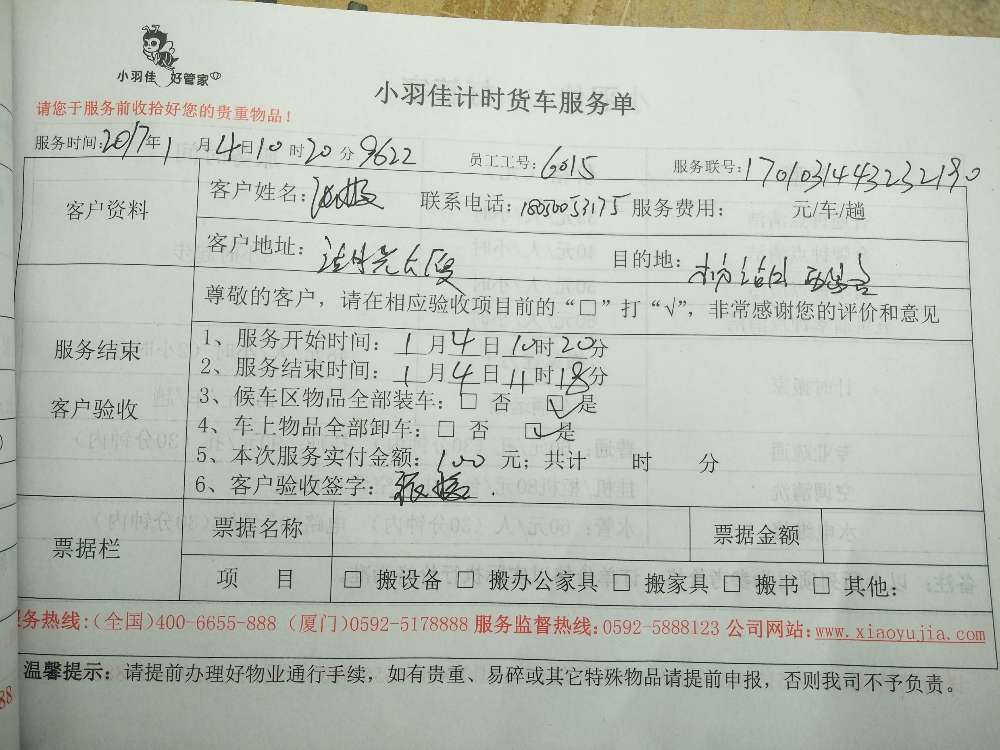 小羽佳 好管家
小羽佳计时货车服务单
请您于服务前收拾好您的贵重物品！
服务时间：2017年1月4日10时20分9622 员工工号：6015 服务联号：1701031443232190
客户资料
客户姓名： 联系电话：18050053175 服务费用： 元/车/趟
客户地址： 目的地：
尊敬的客户，请在相应验收项目前的“□”打“√”，非常感谢您的评价和意见
服务结束
客户验收
1、服务开始时间：1月4日10时20分
2、服务结束时间：1月4日11时18分
3、候车区物品全部装车：□ 否 ☑ 是
4、车上物品全部卸车：□ 否 ☑ 是
5、本次服务实付金额：100元；共计 时 分
6、客户验收签字：
票据栏
票据名称 票据金额
项 目 □ 搬设备 □ 搬办公家具 □ 搬家具 □ 搬书 □ 其他：
服务热线：(全国)400-6655-888 (厦门)0592-5178888 服务监督热线：0592-5888123 公司网站：www.xiaoyujia.com
温馨提示：请提前办理好物业通行手续，如有贵重、易碎或其它特殊物品请提前申报，否则我司不予负责。